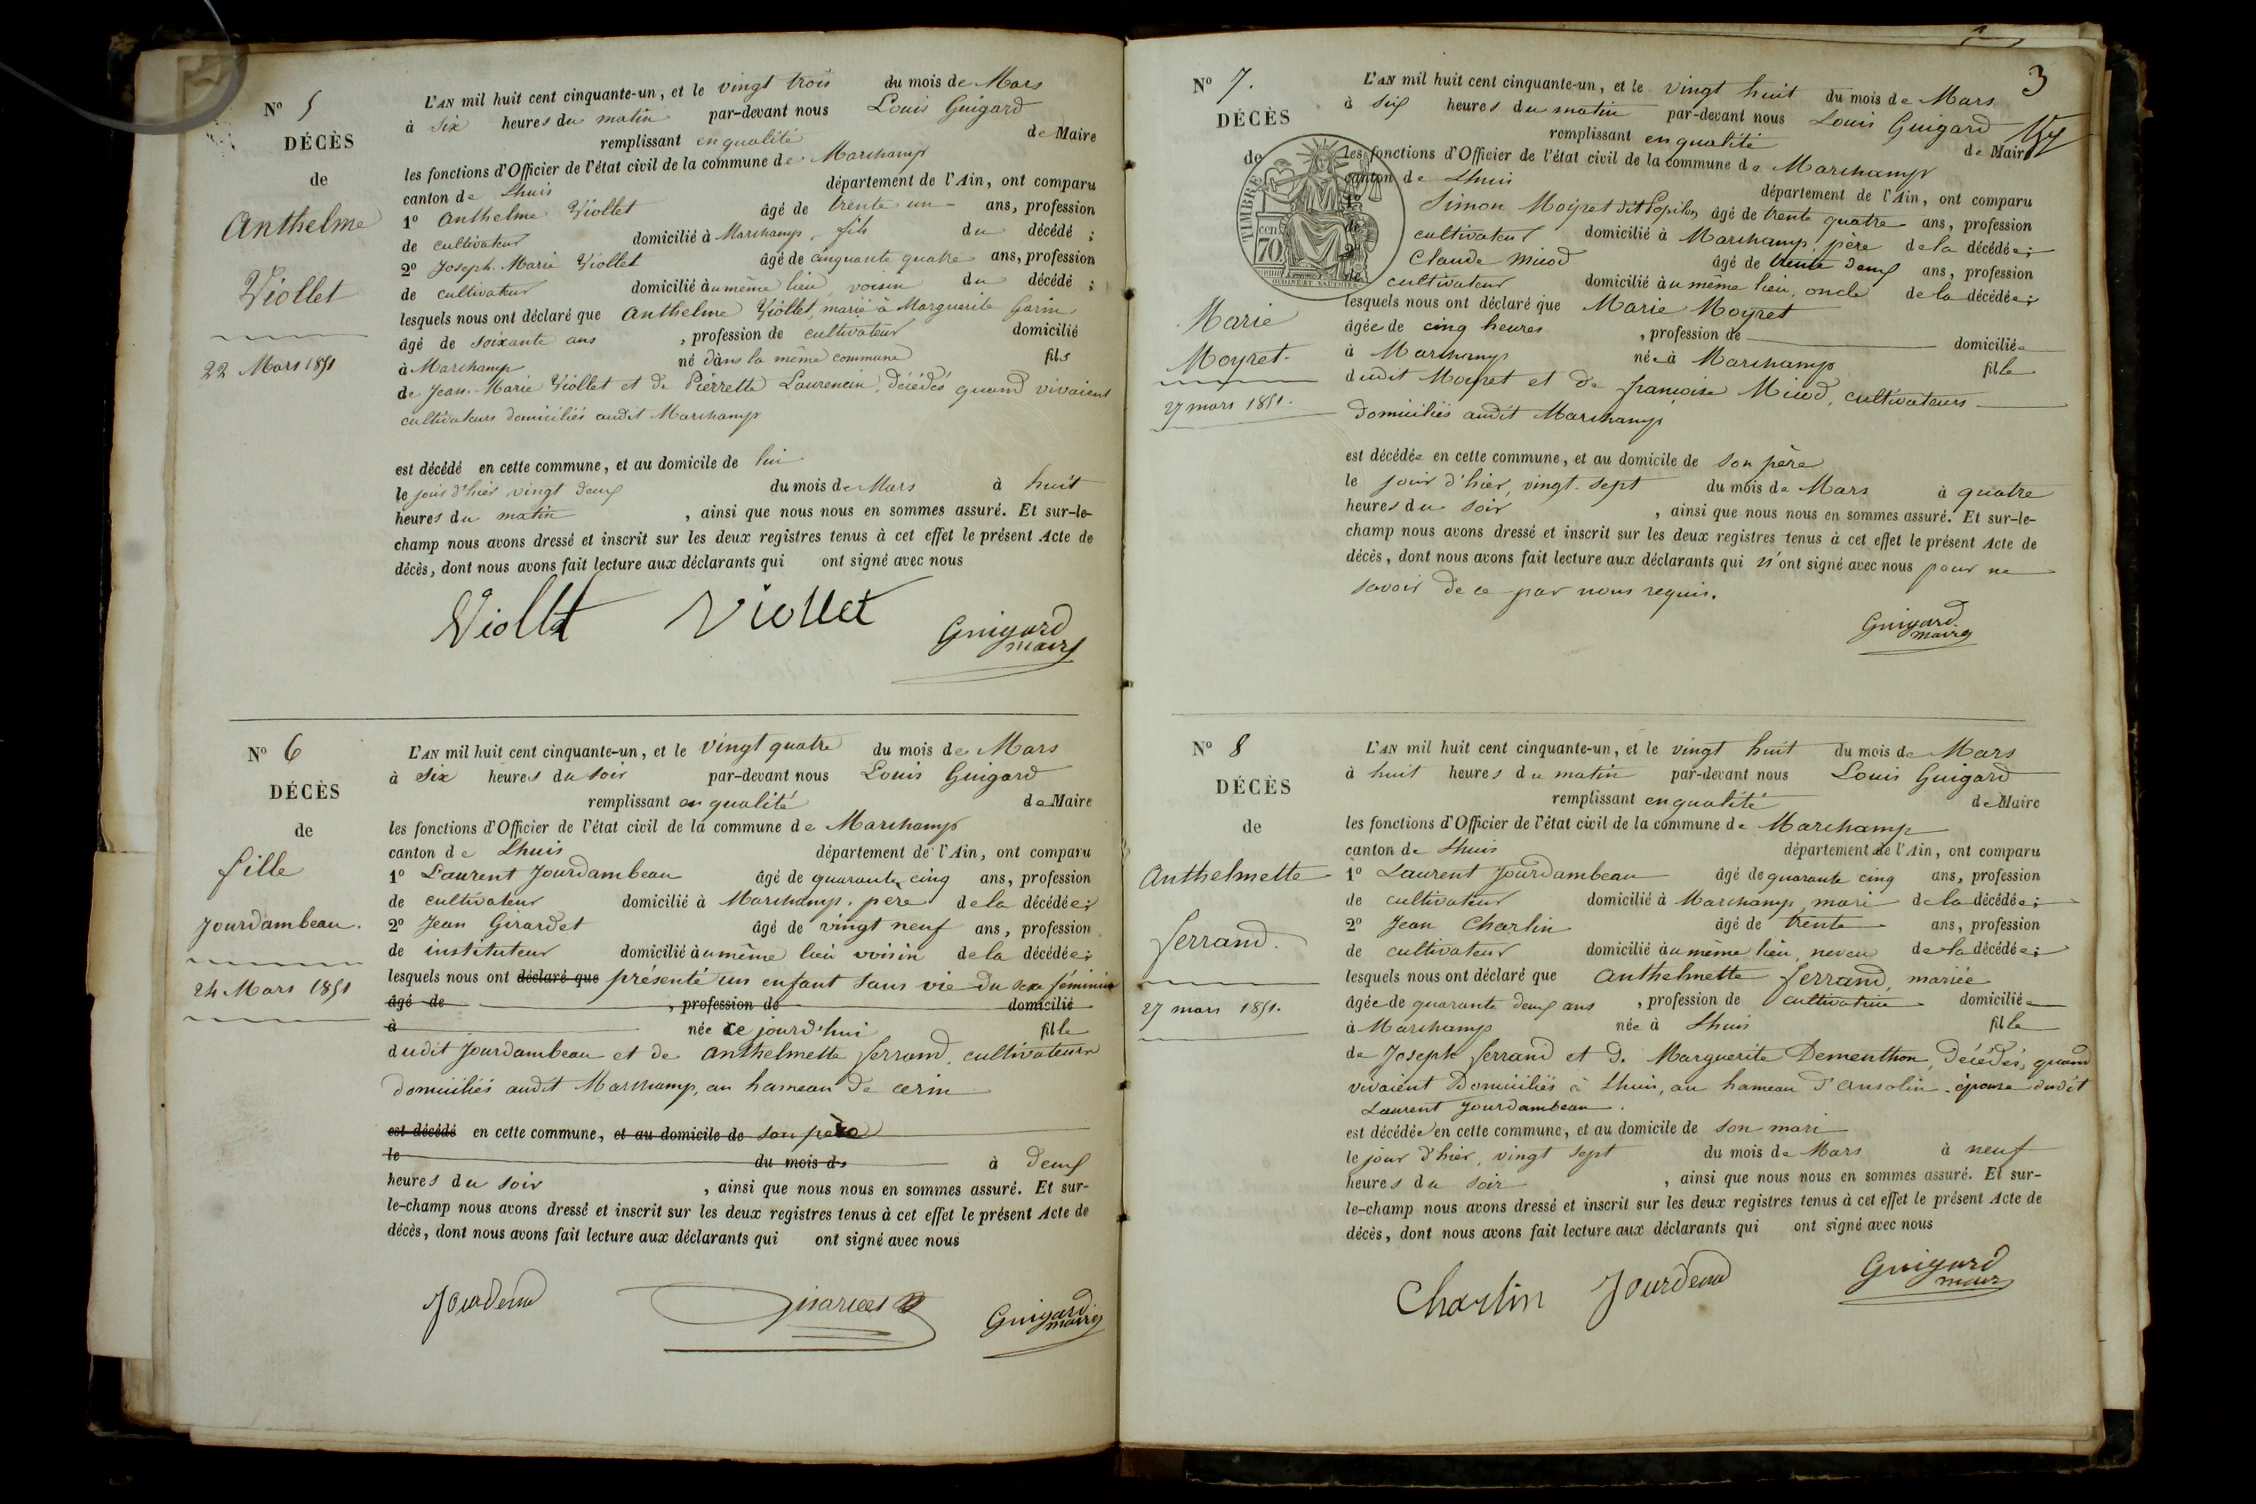 N° 5
DÉCÈS
de
Anthelme
Viollet
22 Mars 1851
L'AN mil huit cent cinquante-un, et le vingt trois du mois de Mars
à six heures du matin par-devant nous Louis Guigard
remplissant en qualité de Maire
les fonctions d'Officier de l'état civil de la commune de Marchamp
canton de Lhuis département de l'Ain, ont comparu
1° Anthelme Viollet âgé de trente un ans, profession
de cultivateur domicilié à Marchamp, fils du décédé ;
2° Joseph-Marie Viollet âgé de cinquante quatre ans, profession
de cultivateur domicilié au même lieu voisin du décédé ;
lesquels nous ont déclaré que Anthelme Viollet, marié à Marguerite Garin
âgé de soixante ans , profession de cultivateur domicilié
à Marchamp né dans la même commune fils
de Jean-Marie Viollet et de Pierrette Laurencin, décédés quand vivaient
cultivateurs domiciliés audit Marchamp
est décédé en cette commune, et au domicile de lui
le jour d'hier vingt deux du mois de Mars à huit
heures du matin , ainsi que nous nous en sommes assuré. Et sur-le-
champ nous avons dressé et inscrit sur les deux registres tenus à cet effet le présent Acte de
décès, dont nous avons fait lecture aux déclarants qui ont signé avec nous
Viollet Viollet Guigard
maire
N° 6
DÉCÈS
de
fille
Jourdambeau.
24 Mars 1851
L'AN mil huit cent cinquante-un, et le vingt quatre du mois de Mars
à six heures du soir par-devant nous Louis Guigard
remplissant en qualité de Maire
les fonctions d'Officier de l'état civil de la commune de Marchamp
canton de Lhuis département de l'Ain, ont comparu
1° Laurent Jourdambeau âgé de quarante cinq ans, profession
de cultivateur domicilié à Marchamp, père de la décédée ;
2° Jean Girardet âgé de vingt neuf ans, profession
de instituteur domicilié au même lieu voisin de la décédée ;
lesquels nous ont déclaré que présenté un enfant sans vie du sexe féminin
âgé de , profession de domicilié
à née ce jourd'hui fille
dudit Jourdambeau et de Anthelmette ferrand, cultivateurs
domiciliés audit Marchamp, au hameau de cerin
est décédé en cette commune, et au domicile de son père
le du mois de à deux
heures du soir , ainsi que nous nous en sommes assuré. Et sur-
le-champ nous avons dressé et inscrit sur les deux registres tenus à cet effet le présent Acte de
décès, dont nous avons fait lecture aux déclarants qui ont signé avec nous
Guigard
maire
3
N° 7.
DÉCÈS
de
Marie
Moyret.
27 mars 1851.
TIMBRE
70 cen
L'AN mil huit cent cinquante-un, et le vingt huit du mois de Mars
à six heures du matin par-devant nous Louis Guigard
remplissant en qualité de Maire
les fonctions d'Officier de l'état civil de la commune de Marchamp
canton de Lhuis département de l'Ain, ont comparu
Simon Moyret dit Papilon âgé de trente quatre ans, profession
cultivateur domicilié à Marchamp, père de la décédée ;
Claude Miod âgé de trente deux ans, profession
de cultivateur domicilié au même lieu, oncle de la décédée ;
lesquels nous ont déclaré que Marie Moyret
âgée de cinq heures , profession de domiciliée
à Marchamp née à Marchamp fille
dudit Moyret et de françoise Miod, cultivateurs
domiciliés audit Marchamp
est décédée en cette commune, et au domicile de son père
le jour d'hier, vingt-sept du mois de Mars à quatre
heures du soir , ainsi que nous nous en sommes assuré. Et sur-le-
champ nous avons dressé et inscrit sur les deux registres tenus à cet effet le présent Acte de
décès, dont nous avons fait lecture aux déclarants qui n'ont signé avec nous pour ne
savoir de ce par nous requis.
Guigard
maire
N° 8
DÉCÈS
de
Anthelmette
ferrand.
27 mars 1851.
L'AN mil huit cent cinquante-un, et le vingt huit du mois de Mars
à huit heures du matin par-devant nous Louis Guigard
remplissant en qualité de Maire
les fonctions d'Officier de l'état civil de la commune de Marchamp
canton de Lhuis département de l'Ain, ont comparu
1° Laurent Jourdambeau âgé de quarante cinq ans, profession
de cultivateur domicilié à Marchamp, mari de la décédée ;
2° Jean Charlin âgé de trente ans, profession
de cultivateur domicilié au même lieu, neveu de la décédée ;
lesquels nous ont déclaré que Anthelmette ferrand, mariée
âgée de quarante deux ans , profession de cultivatrice domiciliée
à Marchamp née à Lhuis fille
de Joseph ferrand et de Marguerite Dementhon, décédés, quand
vivaient Domiciliés à Lhuis, au hameau d'ansolin. épouse dudit
Laurent Jourdambeau.
est décédée en cette commune, et au domicile de son mari
le jour d'hier, vingt sept du mois de Mars à neuf
heures du soir , ainsi que nous nous en sommes assuré. Et sur-
le-champ nous avons dressé et inscrit sur les deux registres tenus à cet effet le présent Acte de
décès, dont nous avons fait lecture aux déclarants qui ont signé avec nous
Charlin Guigard
maire